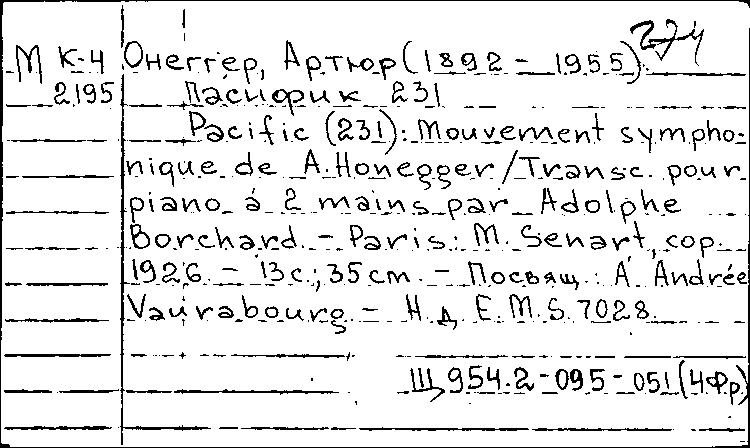 274
М К-4 Онеггер, Артюр (1892 - 1955).
2195 Пасифик 231
Pacific (231): Mouvement sympho-
nique de A. Honegger / Transc. pour
piano à 2 mains par Adolphe
Borchard. - Paris: M. Senart, cop.
1926. - 13 с.; 35 cm. - Посвящ.: A Andrée
Vaurabourg - Н. д. E.M.S. 7028.
Щ954.2-095-051(4Фр)